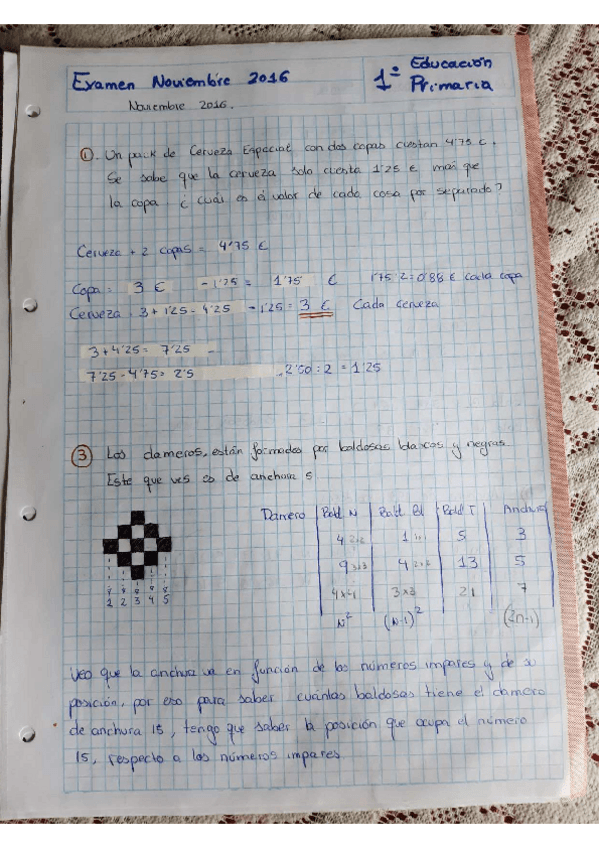 Examen Noviembre 2016
1º Educación Primaria
Noviembre 2016.
① Un pack de Cerveza Especial con dos copas cuestan 4'75 €.
Se sabe que la cerveza solo cuesta 1'25 € más que
la copa ¿ cuál es el valor de cada cosa por separado?
Cerveza + 2 copas = 4'75 €
Copa = 3 € - 1'25 = 1'75 € 1'75:2=0'88 € cada copa
Cerveza = 3 + 1'25 = 4'25 - 1'25 = 3 € Cada cerveza
3 + 4'25 = 7'25
7'25 - 4'75 = 2'5 2'50 : 2 = 1'25
③ Los dameros, están formados por baldosas blancos y negras
Este que ves es de anchura 5
Damero Bald N Bald Bl Bald T Anchura
4 2x2 1 1x1 5 3
9 3x3 4 2x2 13 5
4x4 3x3 21 7
N² (N-1)² (2n-1)
1 2 3 4 5
Veo que la anchura va en función de los números impares y de su
posición, por eso para saber cuántas baldosas tiene el damero
de anchura 15, tengo que saber la posición que ocupa el número
15, respecto a los números impares.